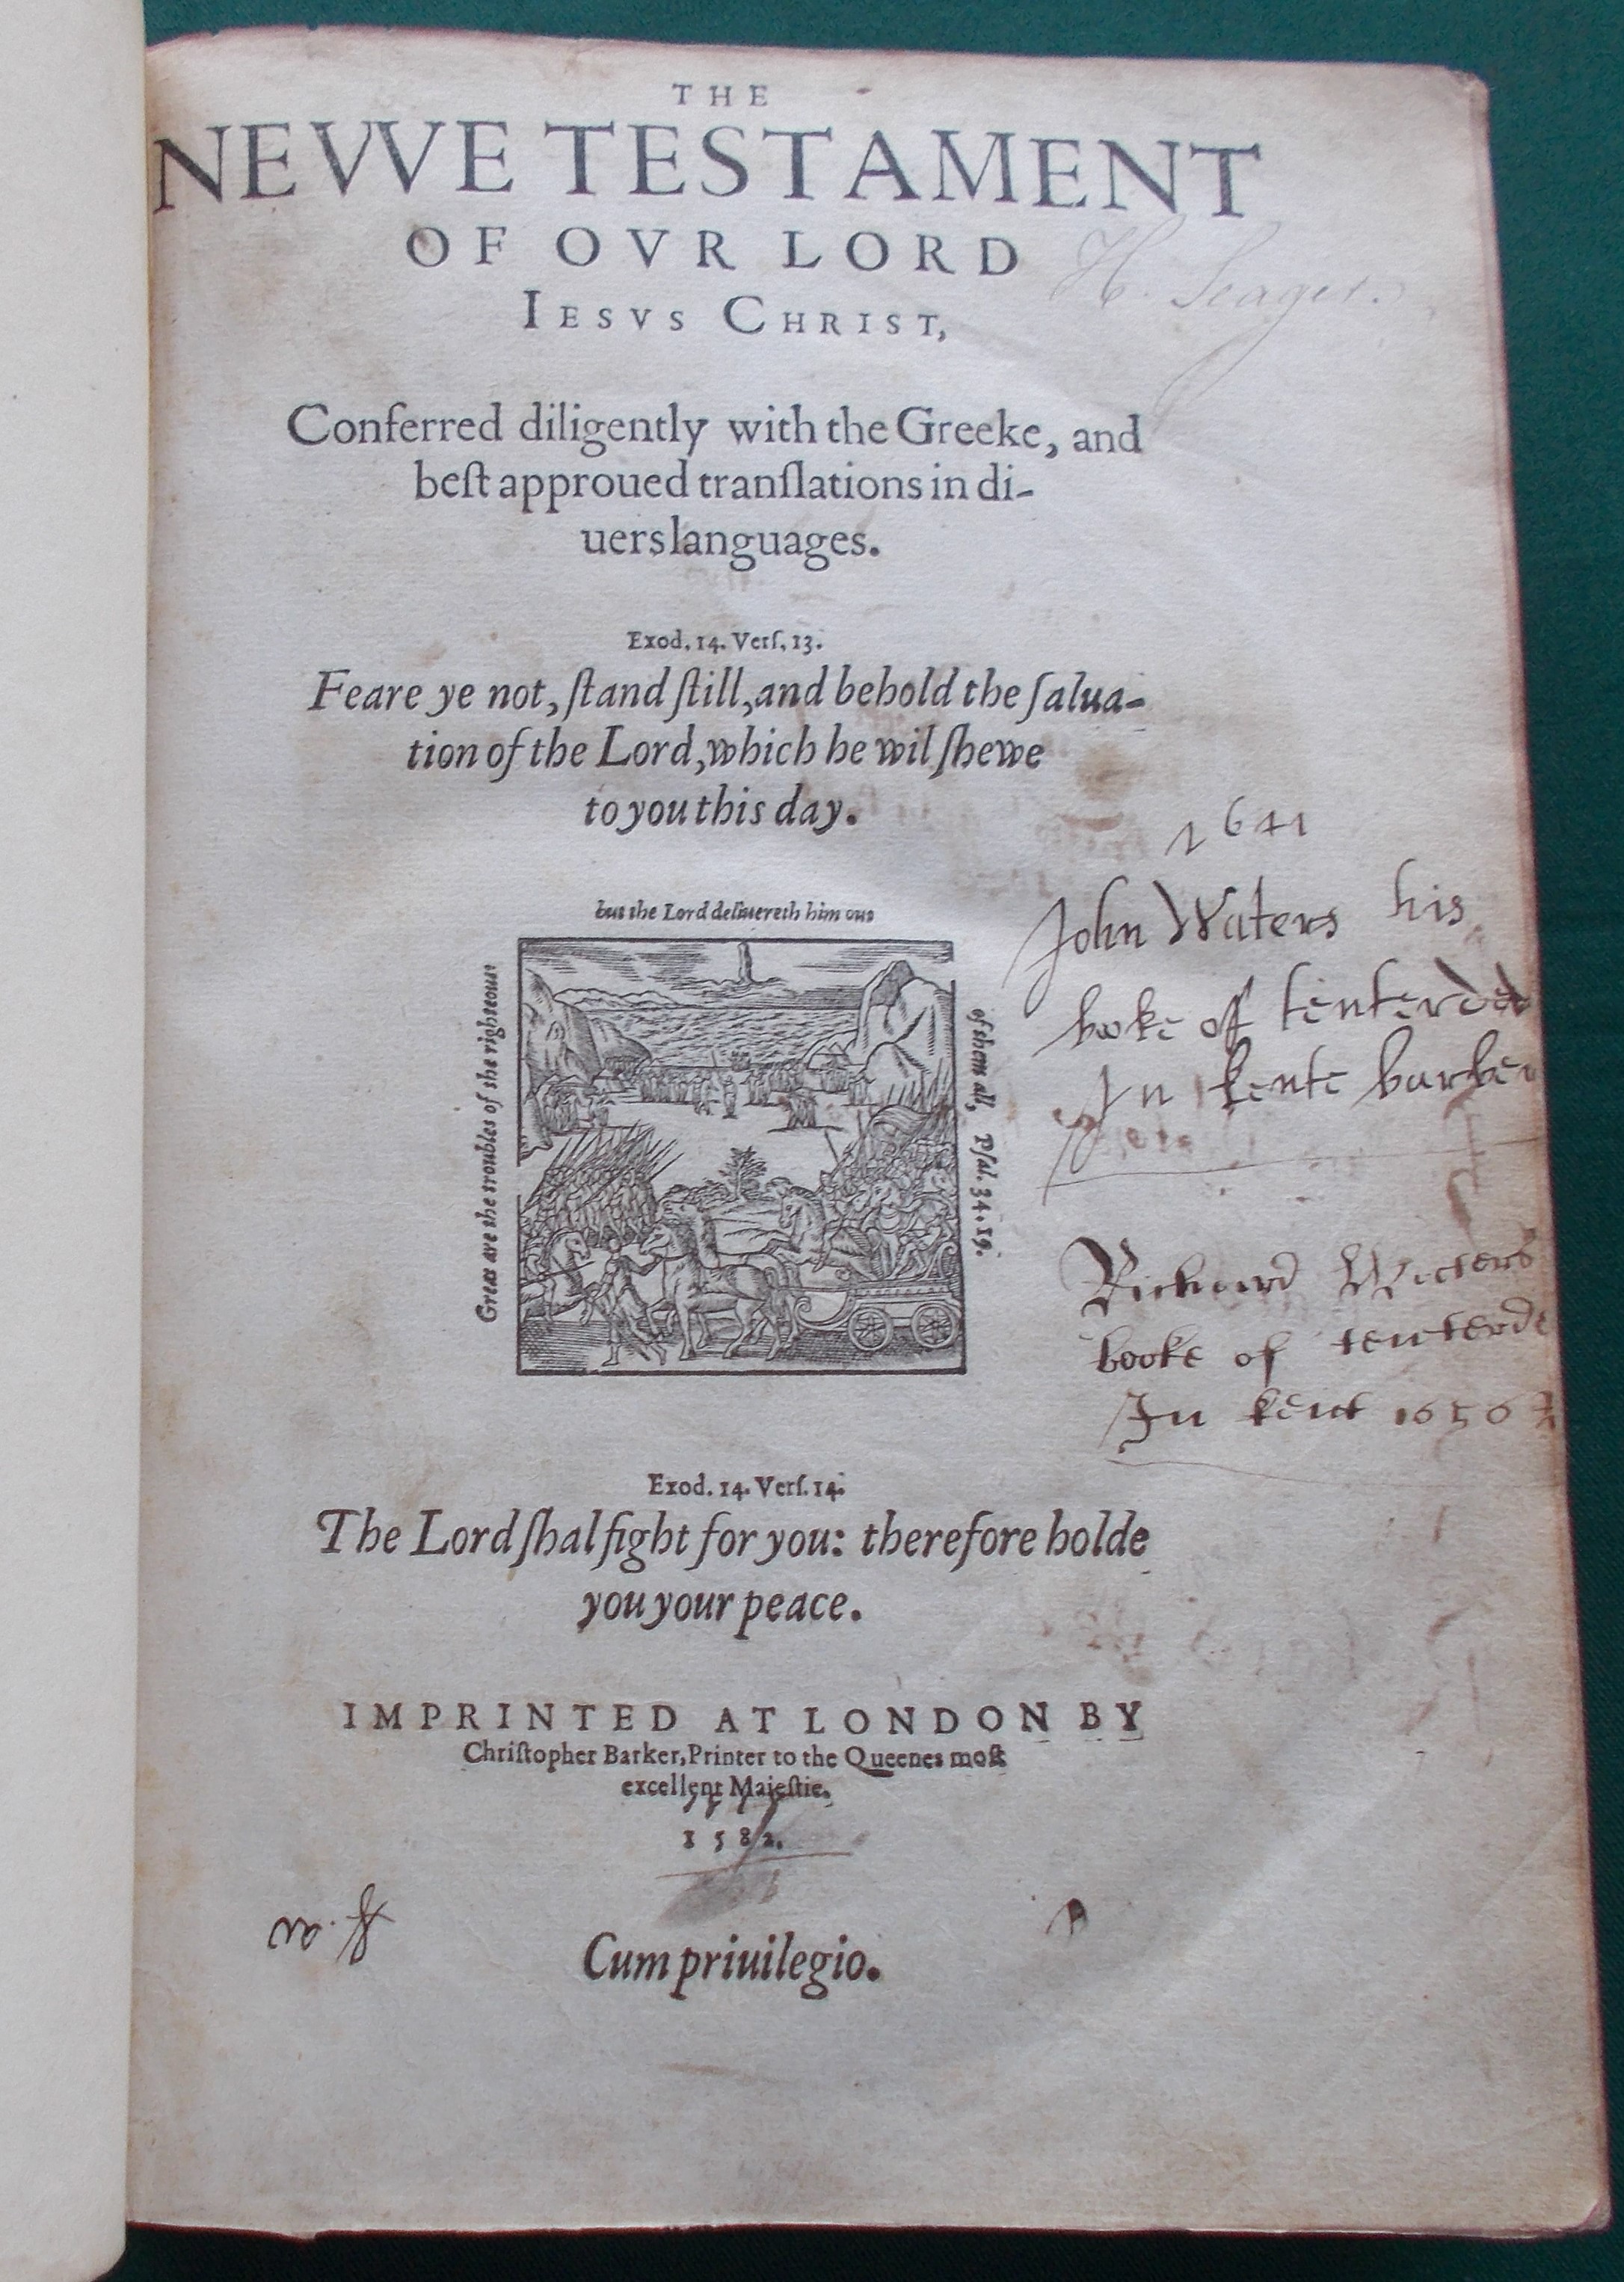 THE
NEVVE TESTAMENT
OF OVR LORD
IESVS CHRIST,
H. Seager.
Conferred diligently with the Greeke, and
beſt approued tranſlations in di-
uers languages.
Exod. 14. Verſ. 13.
Feare ye not, ſtand ſtill, and behold the ſalua-
tion of the Lord, which he wil ſhewe
to you this day.
Great are the troubles of the righteous:
but the Lord deliuereth him out
of them all, Pſal. 34. 19.
1641
John Waters his
boke of tenterden
In kente barber
Richard Waters
booke of tenterde
In kent 1656
Exod. 14. Verſ. 14.
The Lord ſhal fight for you: therefore holde
you your peace.
IMPRINTED AT LONDON BY
Chriſtopher Barker, Printer to the Queenes moſt
excellent Maieſtie.
1582.
Cum priuilegio.